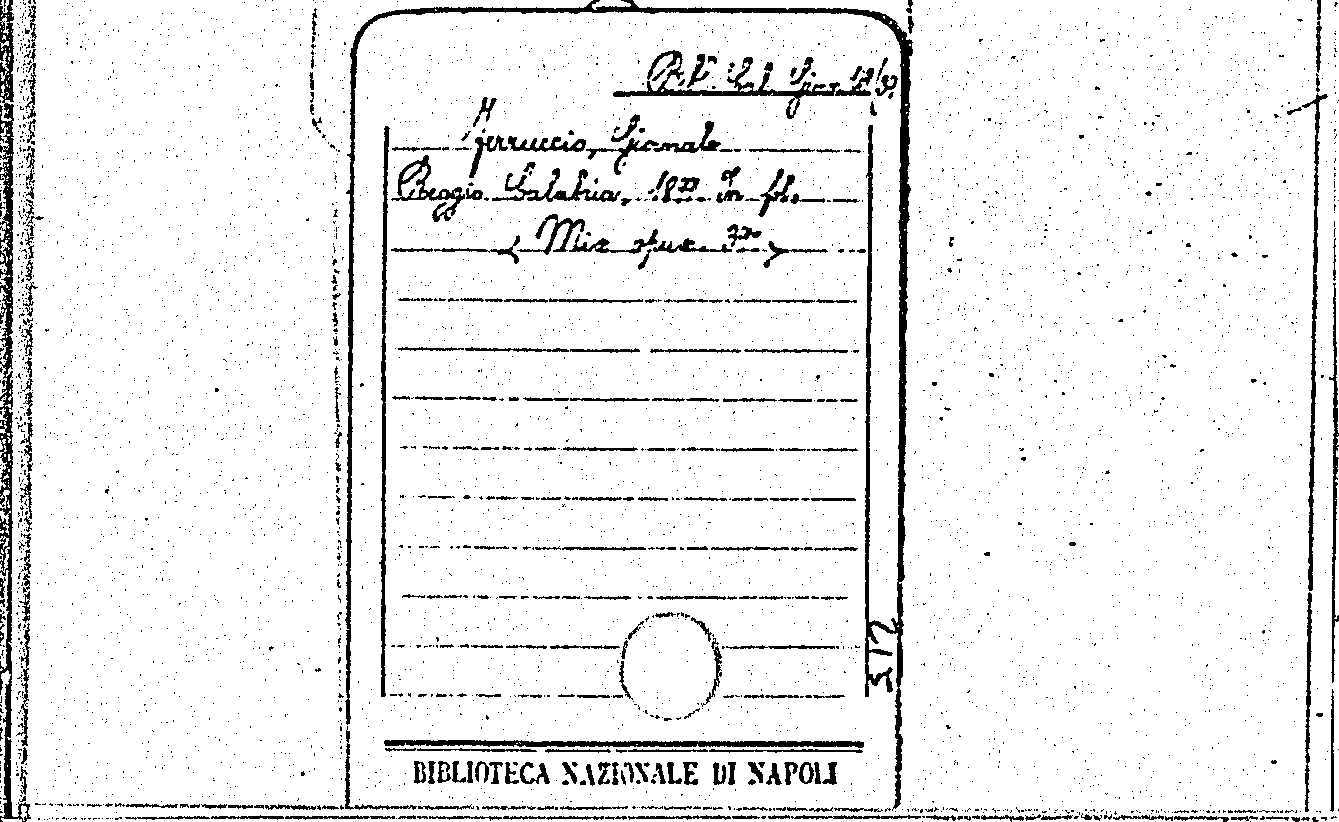 Bibl. Cal. Gior. 18/
Ferruccio, Giornale
Reggio Calabria, 18 In fol.
( Mis opus. )
512
BIBLIOTECA NAZIONALE DI NAPOLI